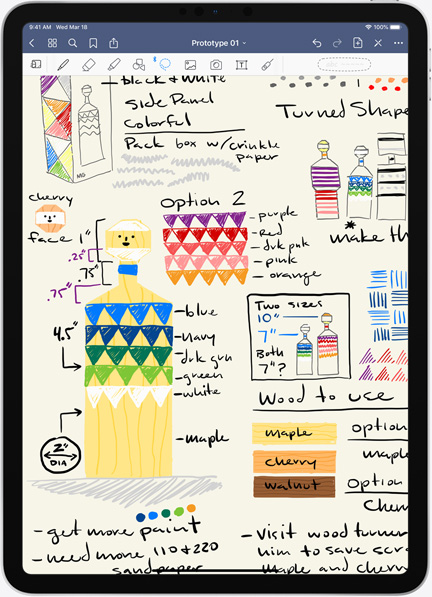 9:41 AM Wed Mar 18
100%
Prototype 01
black & white
Side Panel
Colorful
Pack box w/crinkle
paper
MG
Turned Shape
cherry
face
1"
.25"
.75"
.75"
4.5"
2"
DIA
Option 2
purple
Red
drk pnk
pink
orange
make th
blue
navy
drk grn
green
white
maple
Two sizes
10"
7"
Both
7"?
Wood to use
maple
cherry
walnut
option
maple
option
Cherr
- get more paint
- need more 110 & 220
sandpaper
- visit wood turner
him to save scra
maple and cherry